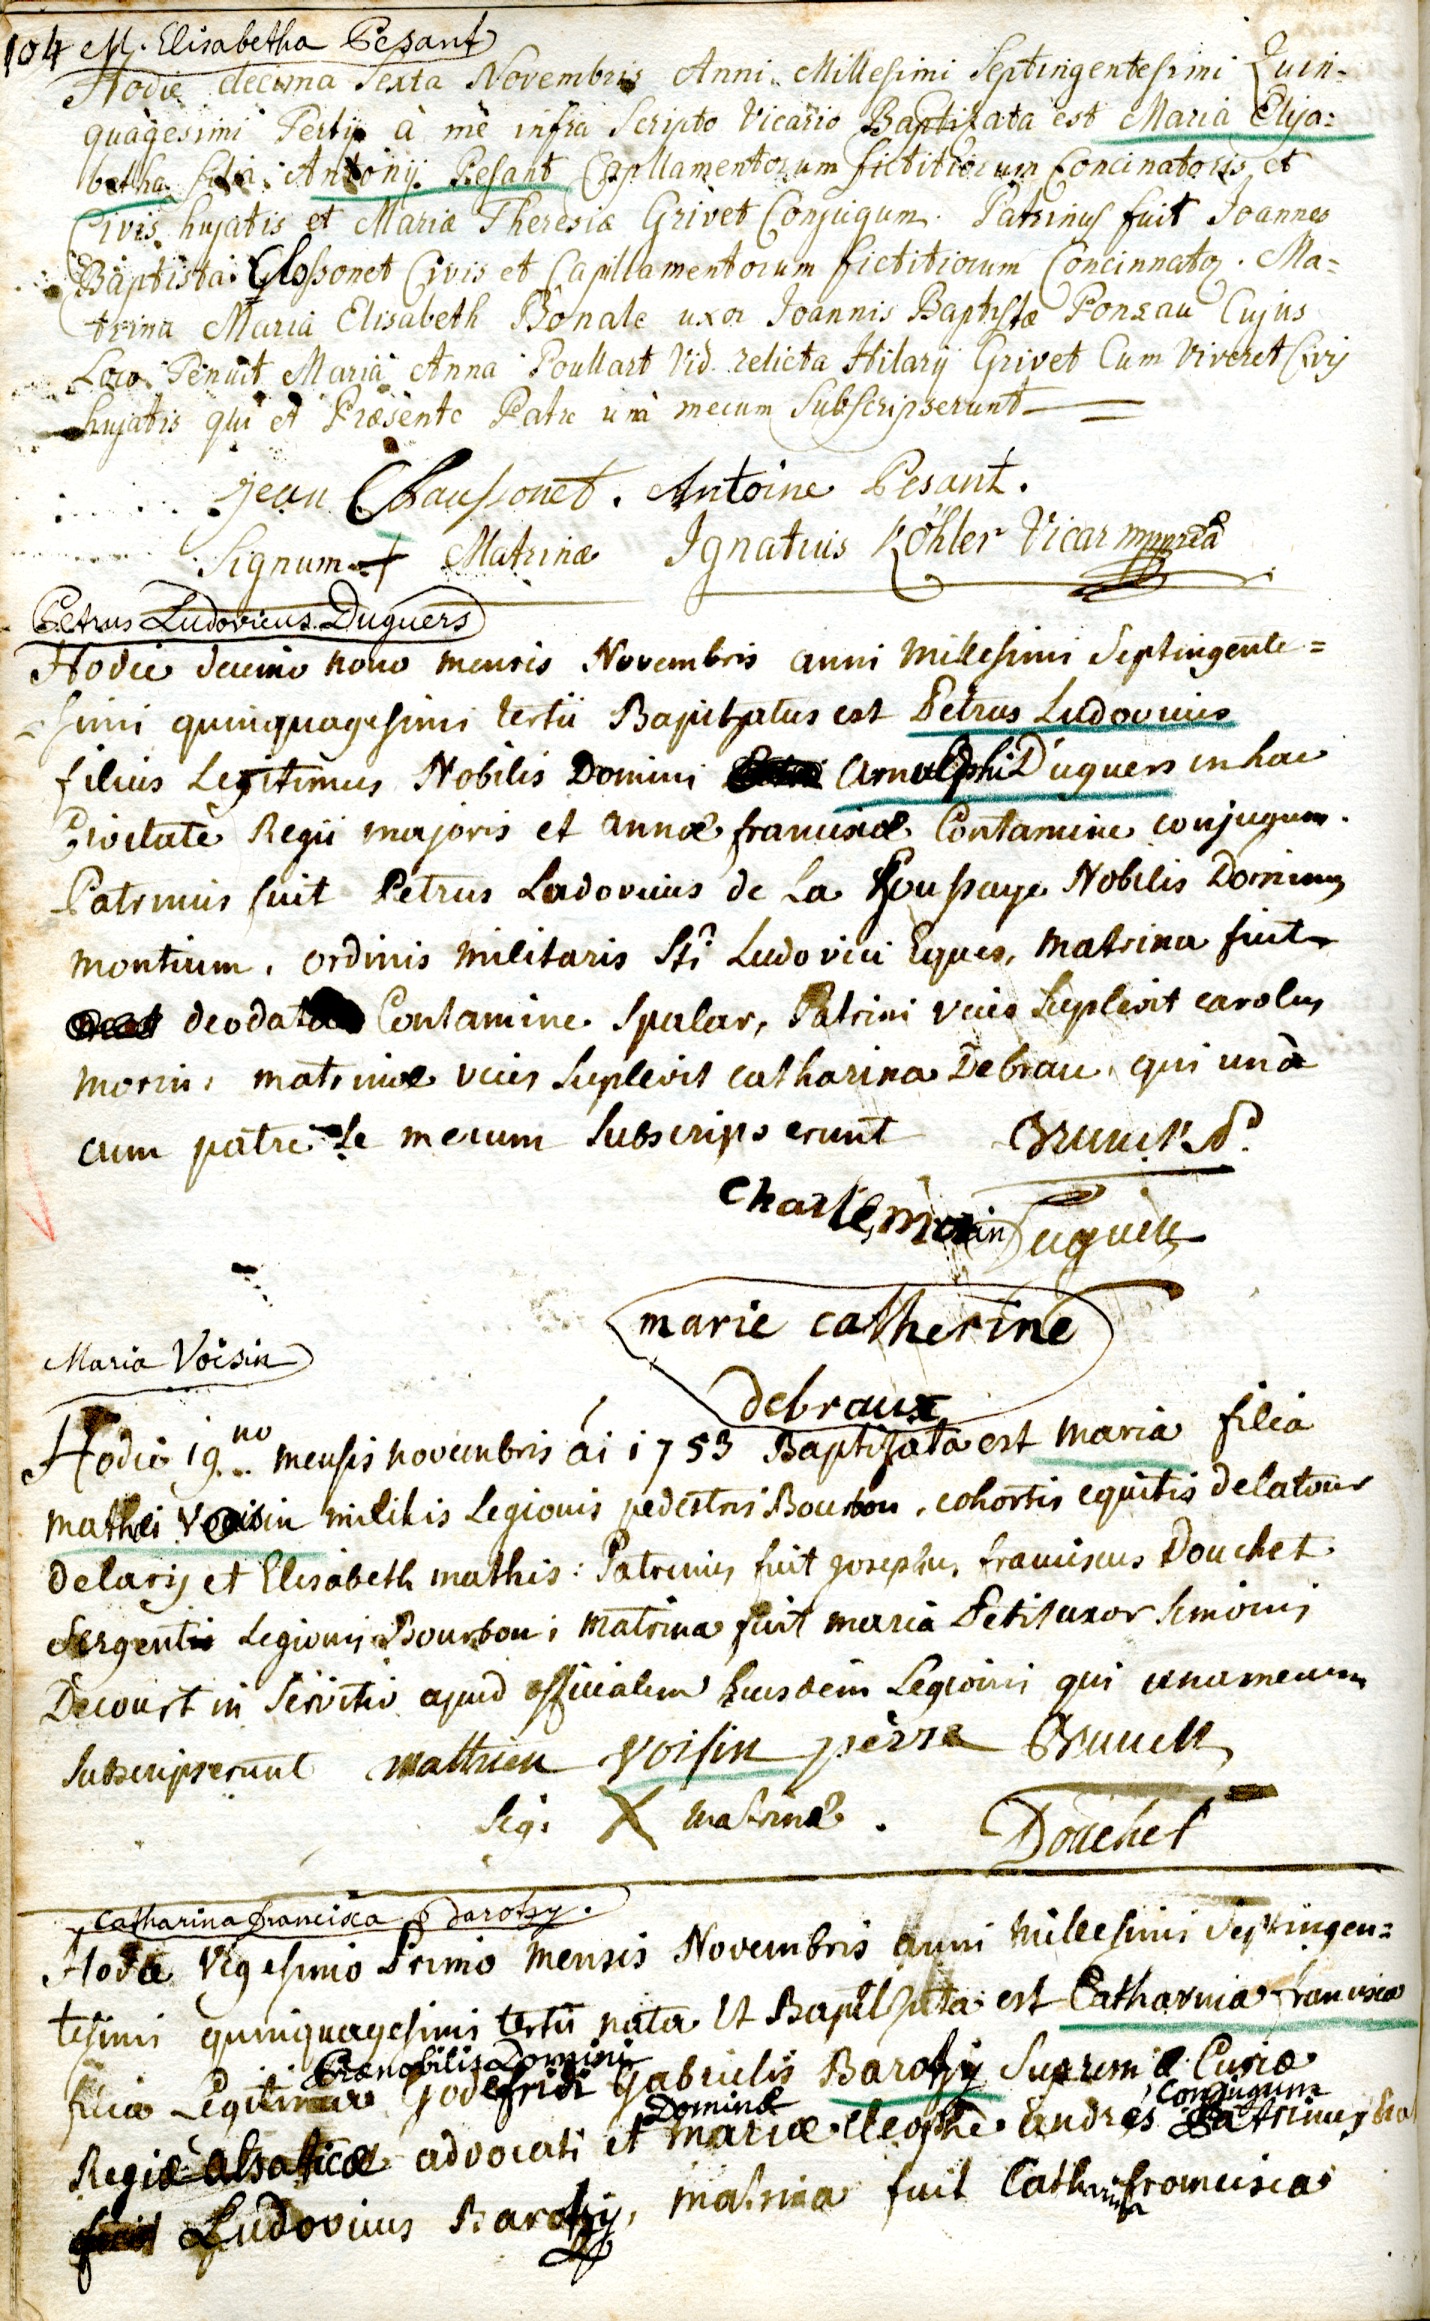 104 M. Elisabetha Pesant
Hodie decima Sexta Novembris Anni Millesimi Septingentesimi Quin-
quagesimi Tertij à me infra Scripto Vicario Baptisata est Maria Elisa=
betha filia Antonij Pesant Capllamentorum fictitiorum Concinatoris et
Civis hujatis et Mariæ Theresiæ Grivet Conjugum. Patrinus fuit Joannes
Baptista Chossonet Civis et Capllamentorum fictitiorum Concinnator. Ma=
trina Maria Elisabeth Bonale uxor Joannis Baptistæ Ponsau Cujus
Loco Tenuit Maria Anna Poullart Vid. relicta Hilarij Grivet Cum Viveret Civis
hujatis qui et Præsente Patre unà mecum Subscripserunt
jean Chaussonet. Antoine Pesant.
Signum + Matrinæ Ignatius Köhler Vicar mppria
Petrus Ludovicus Duguers
Hodie decimo nono mensis Novembris anni millesimi Septingente=
=simi quinquagesimi tertii Baptizatus est Petrus Ludovicus
filius Legitimus Nobilis Domini Arnulphi Duguers in hac
Civitate Regii majoris et annæ franciscæ Contamine conjugum.
Patrinus fuit Petrus Ludovicus de La Houssaye Nobilis Dominus
montium, ordinis militaris Sti Ludovici Eques, matrina fuit
deodata Contamine Spalar, Patrini vices Suplevit carolus
morin, matrinæ vices Suplevit catharina Debrau, qui unà
cum patre se mecum Subscripserunt
Charle morin Duguers
marie catherine
debraux
Maria Voisin
Hodie 19no mensis novembris ái 1753 Baptisata est maria filia
mathei Voisin militis Legionis pedestris Bourbon, cohortis equitis delatour
delarij et Elisabeth mathis: Patrinus fuit josephus franciscus Douchet
Sergentis Legionis Bourbon; matrina fuit maria Petit uxor Simonis
Decourt in Servitio apud officialem Eiusdem Legionis qui una mecum
subscripserunt matthieu voisin père
Sig: X matrinæ. Douchet
Catharina francisca Barotzy.
Hodie Vigesimo Primo Mensis Novembris anni millesimi Septingen=
tesimi quinquagesimi tertii nata et Baptizata est Catharina francisca
Prænobilis Domini
filia Legitima Godefridi Gabrielis Barotzy Supremæ Curiæ
Dominæ Conjugum
Regiæ alsaticæ advocati et mariæ Cleophe andrés Patrinus
Ludovicus Barotzy, matrina fuit Catharina francisca